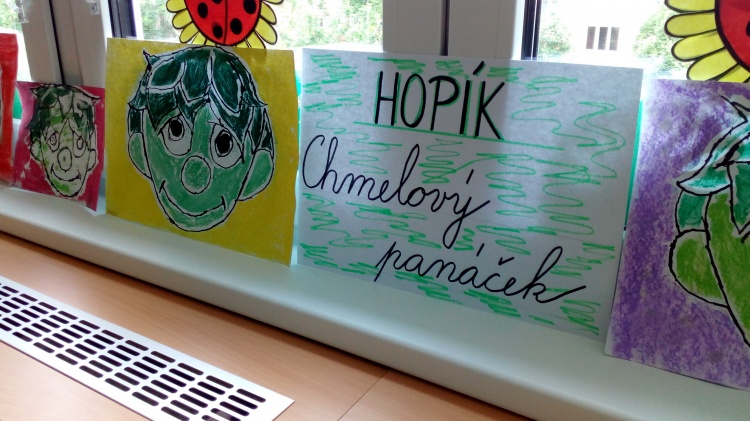 HOPÍK
Chmelový
panáček